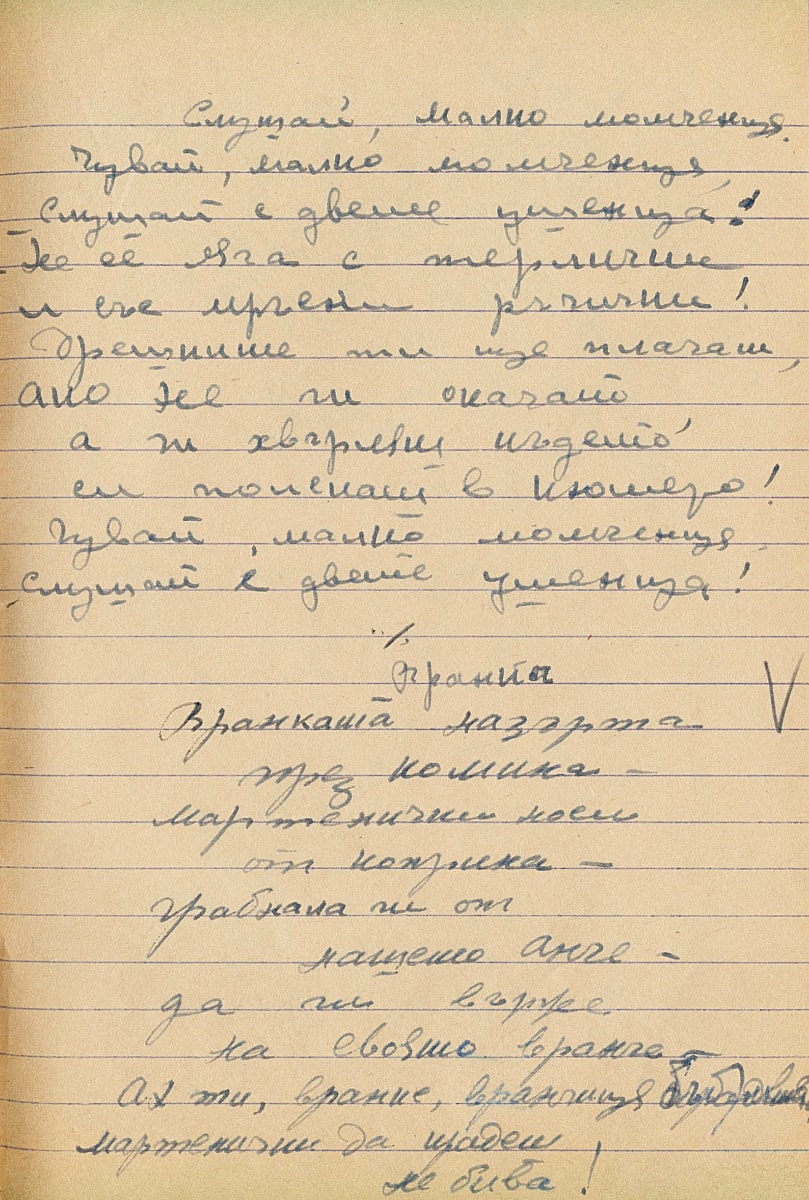 Слушай, малко момченце,
Чувай, малко момченце,
Слушай с двете ушенца!
Не се ляга с терлички
и със мръсни ръчички!
Дрешките ти ще плачат,
ако не ги окачат
а ги хвърлят където
си поискат в кюшето!
Чувай, малко момченце,
слушай с двете ушенца!
Вранка
Вранката назърта
през комина –
мартенички носи
от коприна –
грабнала ги от
нашето Анче –
да ги върже
на своято вранче –
Ах ти, вранке, вранчице
мартенички да крадеш
не бива!